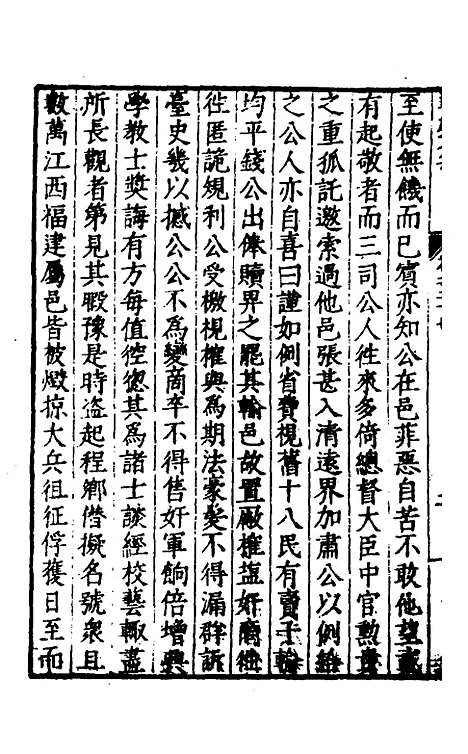 至使無饑而已賓亦知公在邑菲惡自苦不敢他望或
有起敬者而三司公人徃來多倚總督大臣中官勲貴
之重孤託邀索過他邑張甚入清遠界加肅公以例給
之公人亦自喜曰謹如例省費視舊十八民有賣子輸
均平錢公出俸贖畀之罷其輸邑故置廠榷塩奸商徃
徃匿詭規利公受檄視榷與為期法豪髮不得漏群訴
臺史幾以撼公公不為變商卒不得售奸軍餉倍增興
學教士奬誨有方每值倥傯其為諸士談經校藝輒盡
所長觀者第見其暇豫是時盗起程鄉僭擬名號衆且
數萬江西福建屬邑皆被燬掠大兵徂征俘獲日至而